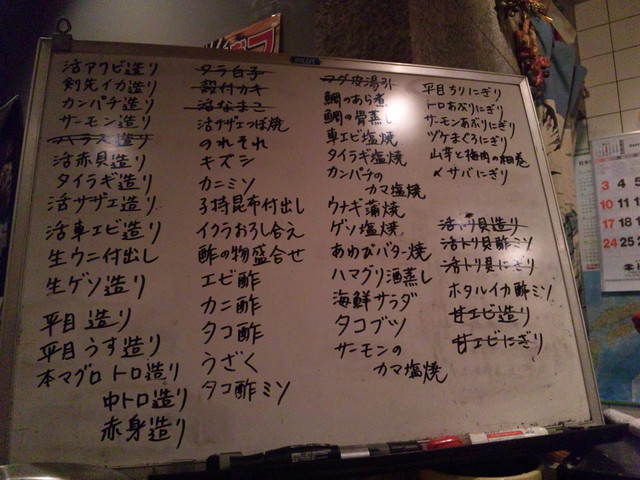 PILOT
活アワビ造り
剣先イカ造り
カンパチ造り
サーモン造り
ハラス造り
活赤貝造り
タイラギ造り
活サザエ造り
活車エビ造り
生ウニ付出し
生ゲソ造り
平目造り
平目うす造り
本マグロ トロ造り
中トロ造り
赤身造り
タラ白子
殻付カキ
活なまこ
活サザエつぼ焼
のれそれ
キズシ
カニミソ
子持昆布付出し
イクラおろし合え
酢の物盛合せ
エビ酢
カニ酢
タコ酢
うざく
タコ酢ミソ
フグ皮湯引
鯛のあら煮
鯛の骨蒸し
車エビ塩焼
タイラギ塩焼
カンパチの
カマ塩焼
ウナギ蒲焼
ゲソ塩焼
あわびバター焼
ハマグリ酒蒸し
海鮮サラダ
タコブツ
サーモンの
カマ塩焼
平目ちりにぎり
トロあぶりにぎり
サーモンあぶりにぎり
ヅケまぐろにぎり
山芋と梅肉の細巻
〆サバにぎり
活トリ貝造り
活トリ貝酢ミソ
活トリ貝にぎり
ホタルイカ酢ミソ
甘エビ造り
甘エビにぎり
3 4
10 11
17 18
24 25